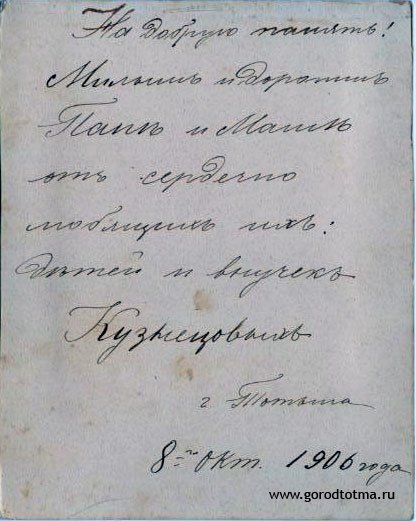 На добрую память!
Милымъ и дорогимъ
Папѣ и Мамѣ
отъ сердечно
любящихъ ихъ:
дѣтей и внучекъ
Кузнецовыхъ
г. Тотьма
8-го Окт. 1906 года
www.gorodtotma.ru